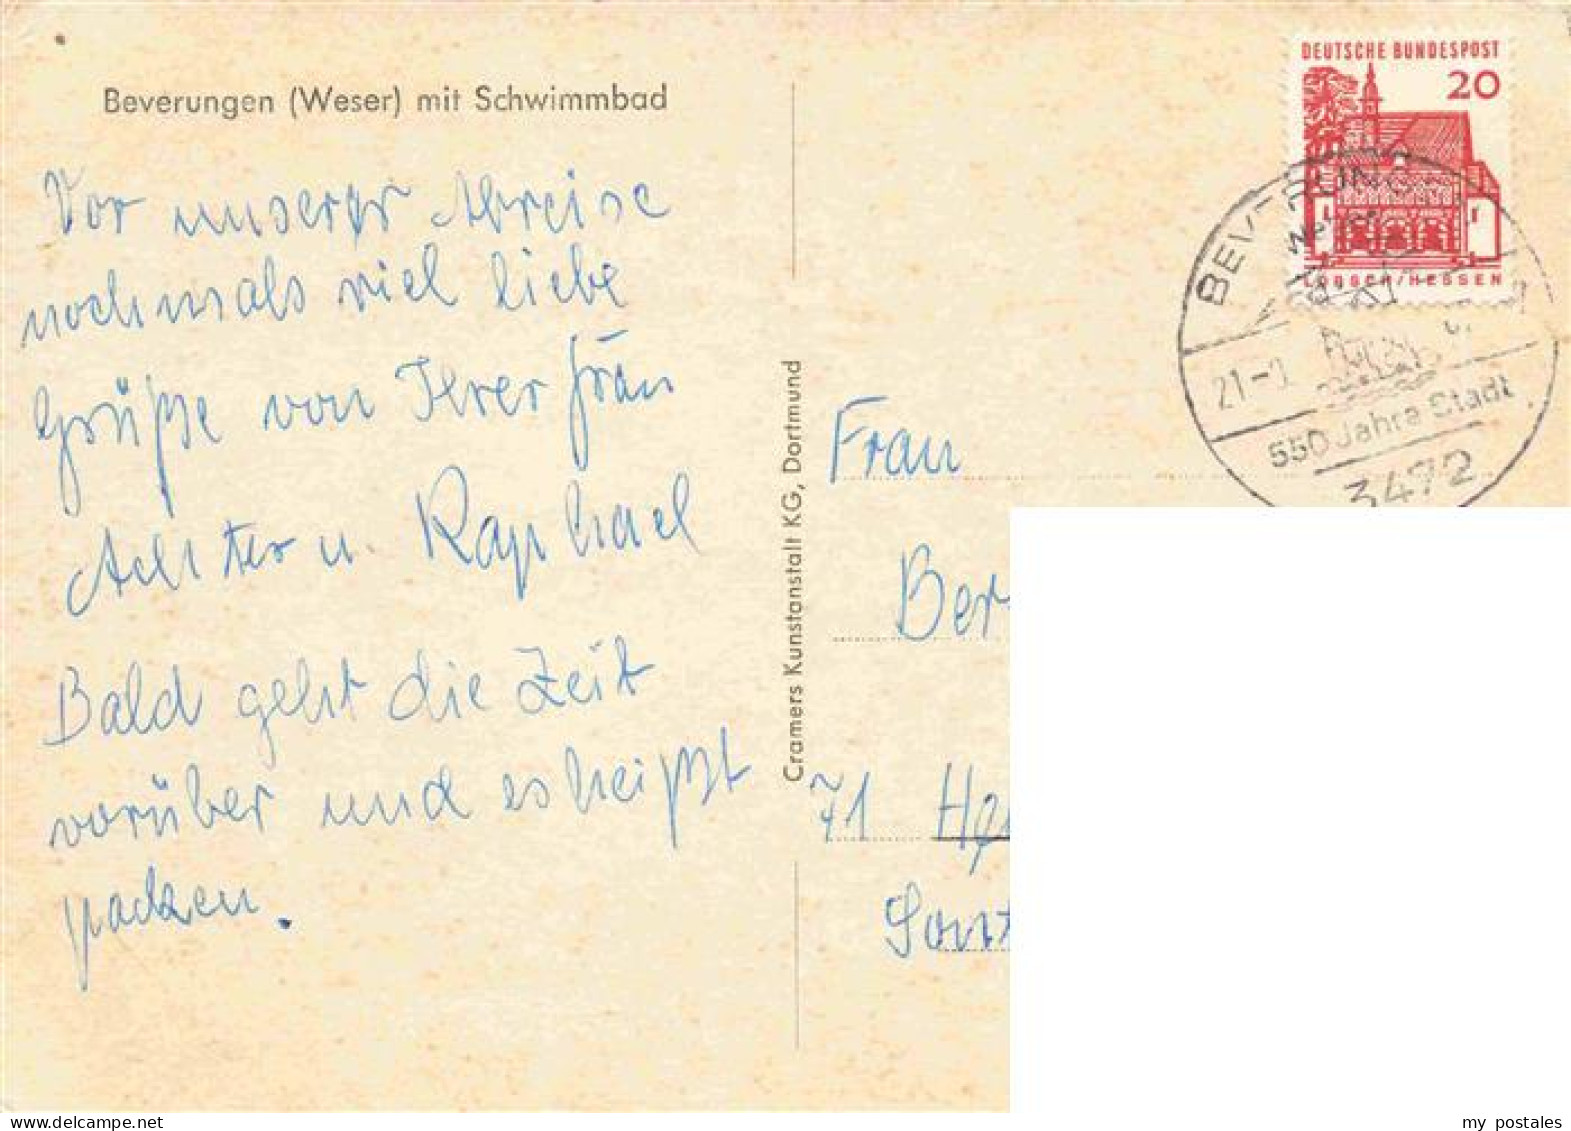 Beverungen (Weser) mit Schwimmbad
Vor unserer Abreise
nochmals viel liebe
Grüße von Ihrer frau
u. Raphael
Bald geht die Zeit
vorüber und es heißt
packen.
Cramers Kunstanstalt KG, Dortmund
DEUTSCHE BUNDESPOST
20
LORSCH/HESSEN
BEVERUNGEN
21-
550 Jahre Stadt
3472
Frau
Ber
71
my postales